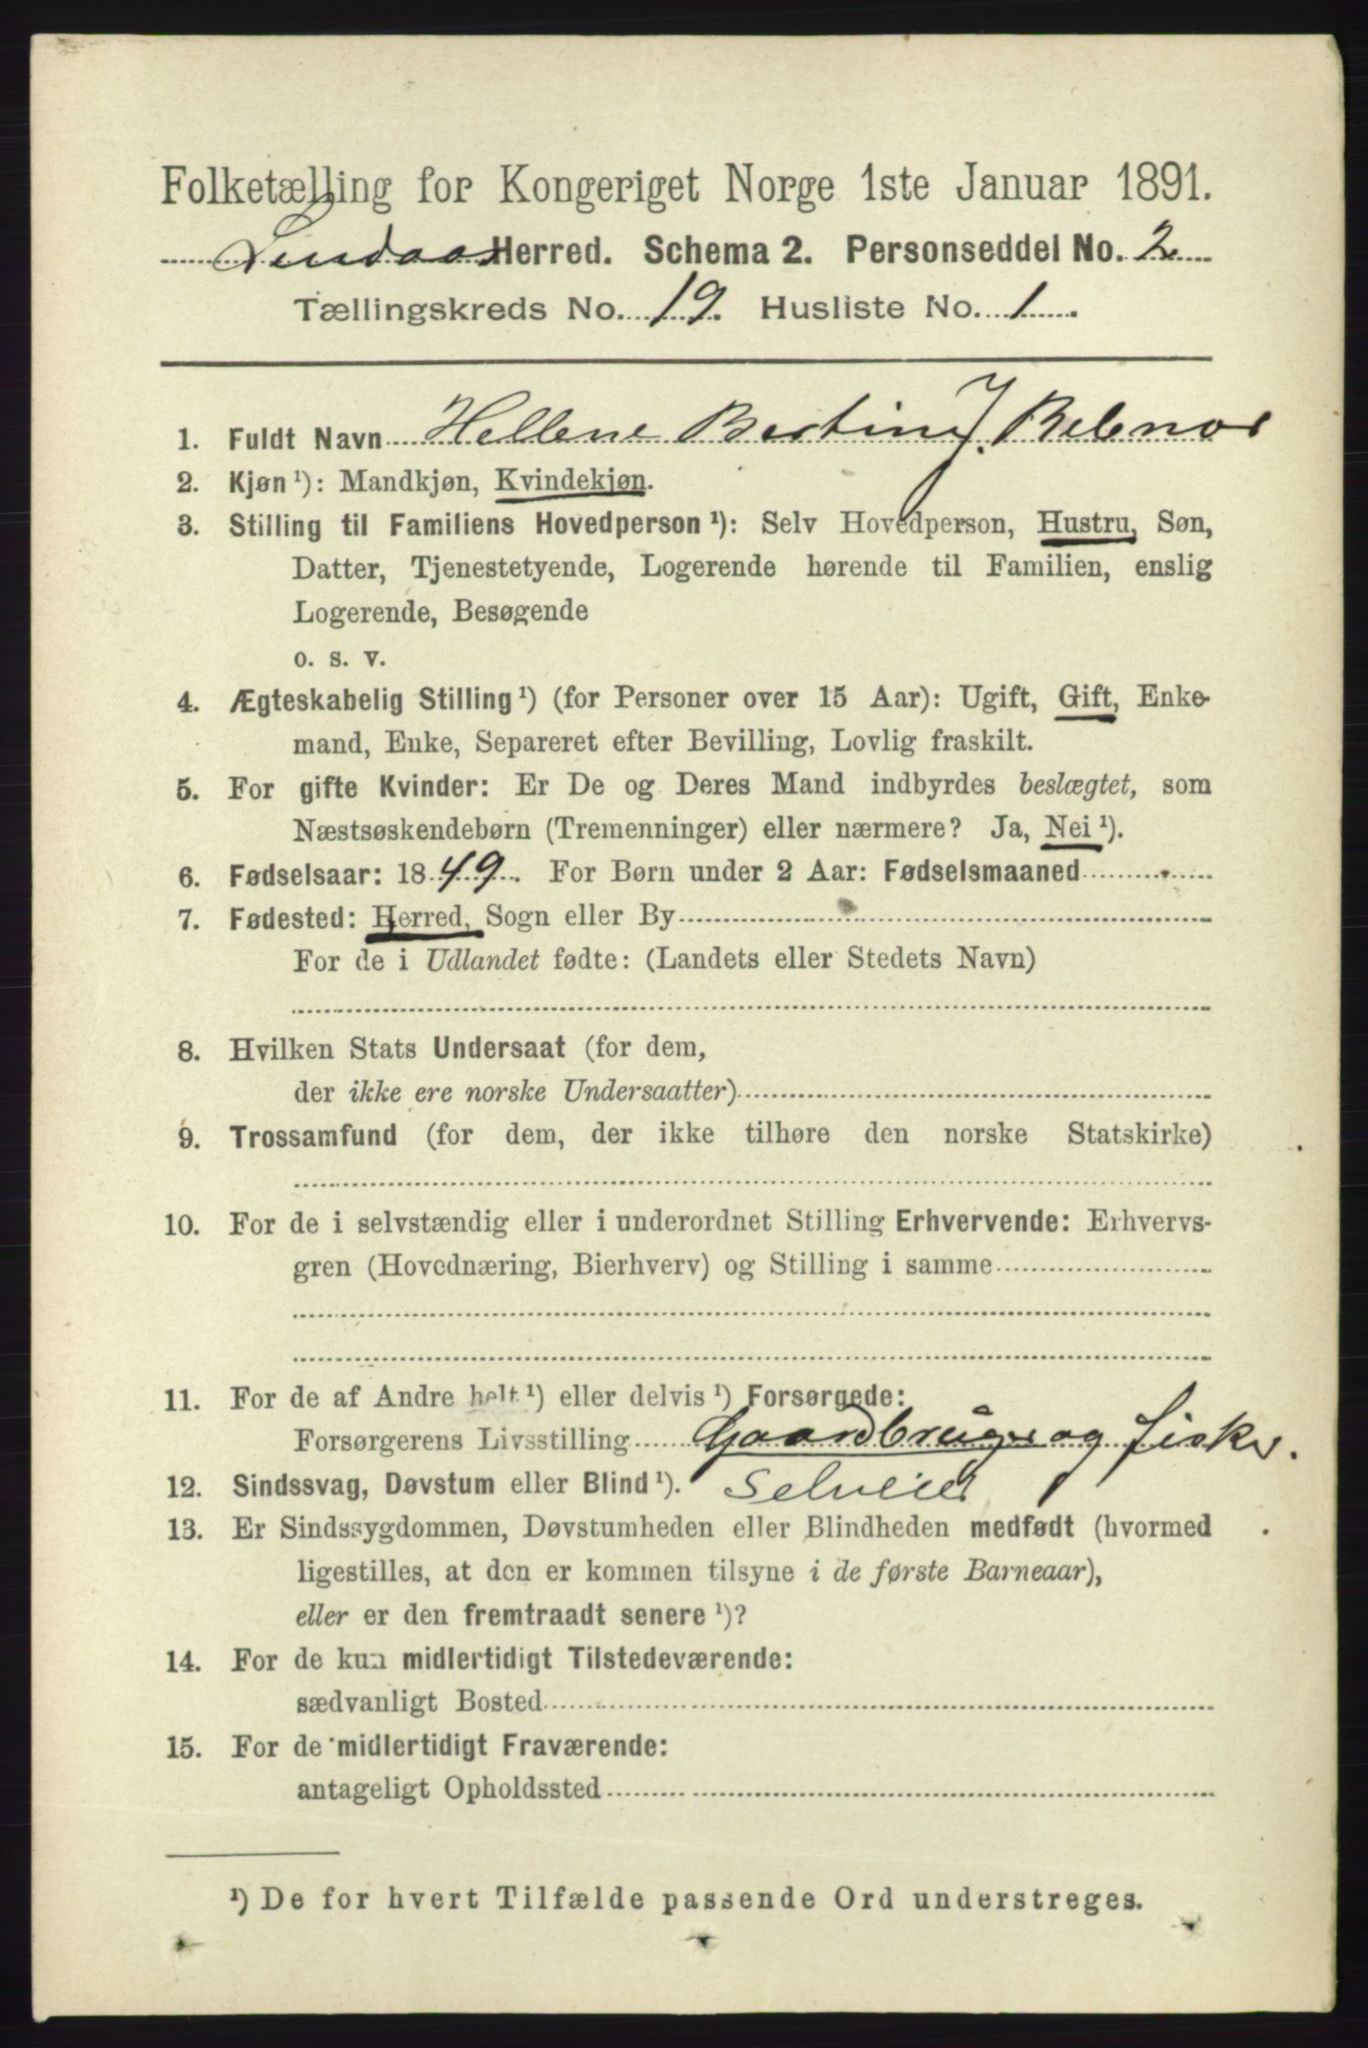 Folketælling for Kongeriget Norge 1ste Januar 1891.
Lindaas Herred. Schema 2. Personseddel No. 2
Tællingskreds No. 19. Husliste No. 1.
1. Fuldt Navn Hellene Bertine J.
2. Kjøn ¹): Mandkjøn, Kvindekjøn.
3. Stilling til Familiens Hovedperson ¹): Selv Hovedperson, Hustru, Søn,
Datter, Tjenestetyende, Logerende hørende til Familien, enslig
Logerende, Besøgende
o. s. v.
4. Ægteskabelig Stilling ¹) (for Personer over 15 Aar): Ugift, Gift, Enke-
mand, Enke, Separeret efter Bevilling, Lovlig fraskilt.
5. For gifte Kvinder: Er De og Deres Mand indbyrdes beslægtet, som
Næstsøskendebørn (Tremenninger) eller nærmere? Ja, Nei ¹).
6. Fødselsaar: 1849. For Børn under 2 Aar: Fødselsmaaned
7. Fødested: Herred, Sogn eller By
For de i Udlandet fødte: (Landets eller Stedets Navn)
8. Hvilken Stats Undersaat (for dem,
der ikke ere norske Undersaatter)
9. Trossamfund (for dem, der ikke tilhøre den norske Statskirke)
10. For de i selvstændig eller i underordnet Stilling Erhvervende: Erhvervs-
gren (Hovednæring, Bierhverv) og Stilling i samme
11. For de af Andre helt ¹) eller delvis ¹) Forsørgede:
Forsørgerens Livsstilling Gaardbruger og fisker.
12. Sindssvag, Døvstum eller Blind ¹). Selveier
13. Er Sindssygdommen, Døvstumheden eller Blindheden medfødt (hvormed
ligestilles, at den er kommen tilsyne i de første Barneaar),
eller er den fremtraadt senere ¹)?
14. For de kun midlertidigt Tilstedeværende:
sædvanligt Bosted
15. For de midlertidigt Fraværende:
antageligt Opholdssted
¹) De for hvert Tilfælde passende Ord understreges.